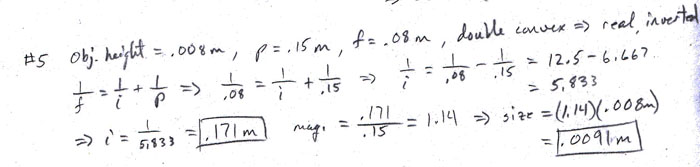 #5 Obj. height = .008 m, p = .15 m, f = .08 m, double convex => real, inverted
1/f = 1/i + 1/p => 1/.08 = 1/i + 1/.15 => 1/i = 1/.08 - 1/.15 = 12.5 - 6.667
= 5.833
=> i = 1/5.833 = .171 m mag. = .171/.15 = 1.14 => size = (1.14)(.008m)
= .0091 m